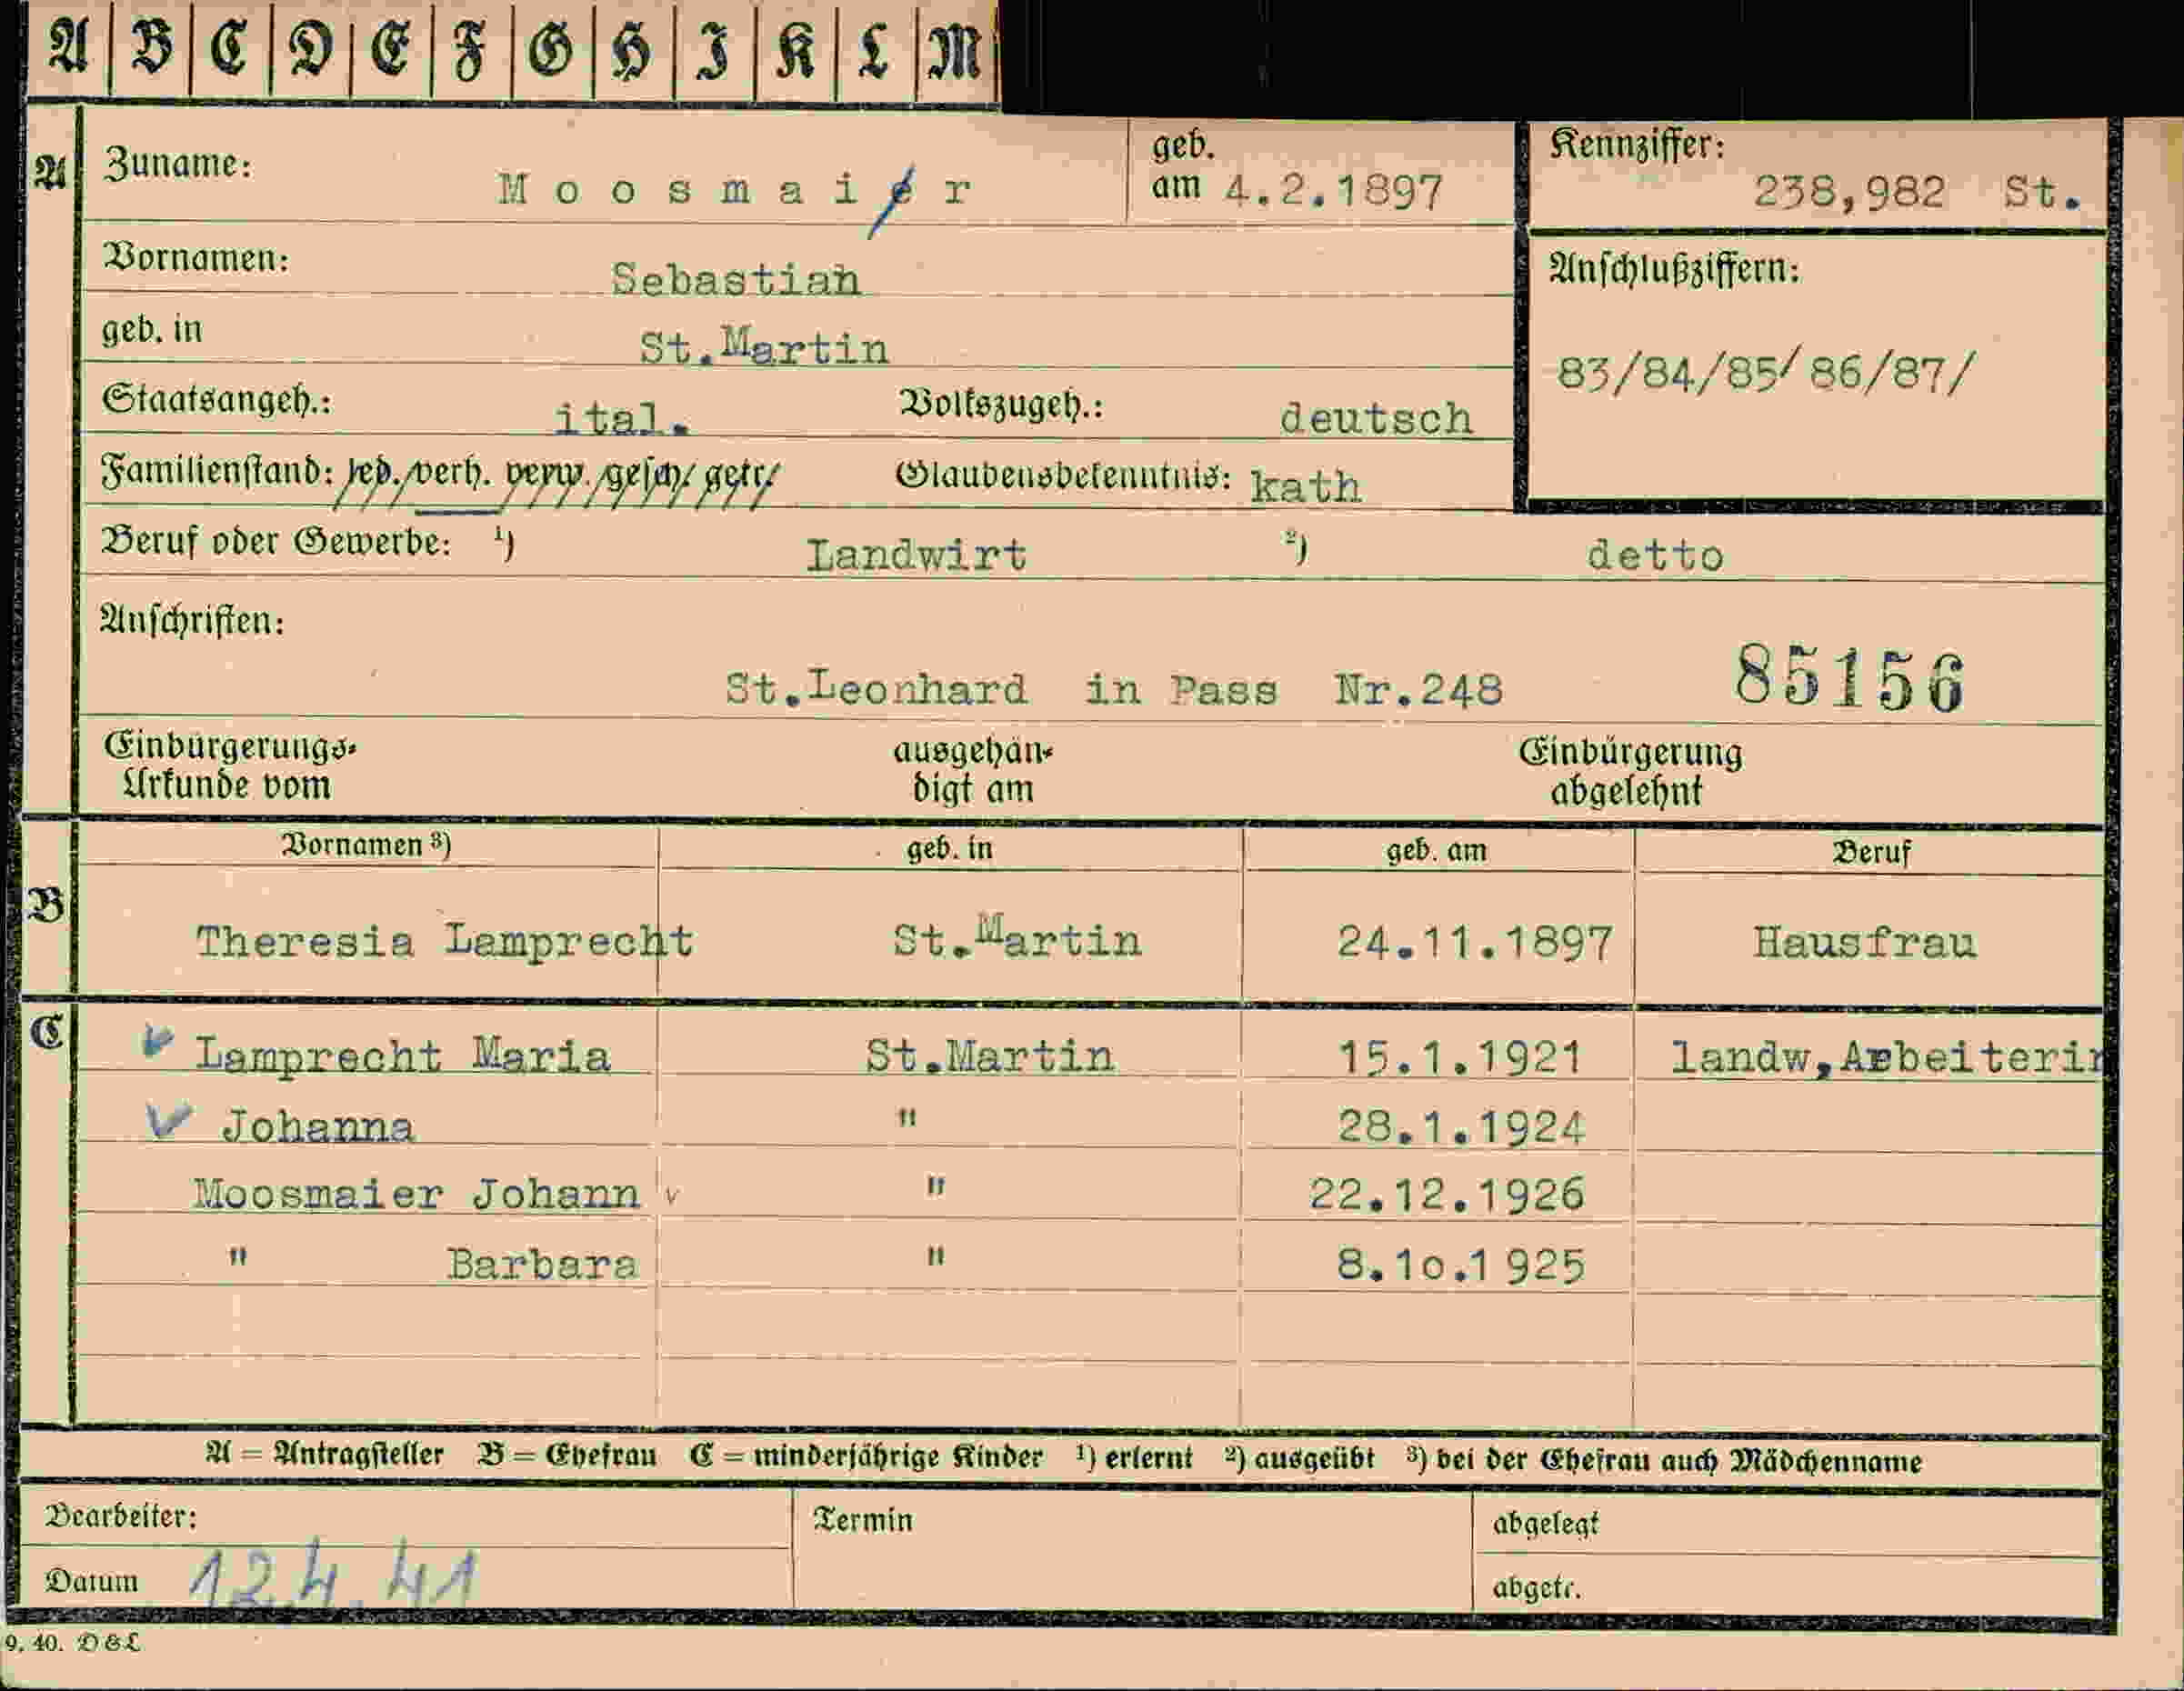 A B C D E F G H I K L M
A
Zuname: Moosmaier
geb. am 4.2.1897
Kennziffer:
238,982 St.
Vornamen: Sebastian
Anschlußziffern:
geb. in St.Martin
83/84/85/86/87/
Staatsangeh.: ital. Volkszugeh.: deutsch
Familienstand: led. verh. verw. gesch. getr. Glaubensbekenntnis: kath
Beruf oder Gewerbe: ¹) Landwirt ²) detto
Anschriften:
St.Leonhard in Pass Nr.248 85156
Einbürgerungs-
Urkunde vom
ausgehän-
digt am
Einbürgerung
abgelehnt
Vornamen ³) geb. in geb. am Beruf
B
Theresia Lamprecht St.Martin 24.11.1897 Hausfrau
C
Lamprecht Maria St.Martin 15.1.1921 landw,Arbeiterin
Johanna " 28.1.1924
Moosmaier Johann v " 22.12.1926
" Barbara " 8.1o.1925
A = Antragsteller B = Ehefrau C = minderjährige Kinder ¹) erlernt ²) ausgeübt ³) bei der Ehefrau auch Mädchenname
Bearbeiter:
Termin
abgelegt
Datum 12.4.41
abgetr.
9. 40. D&L